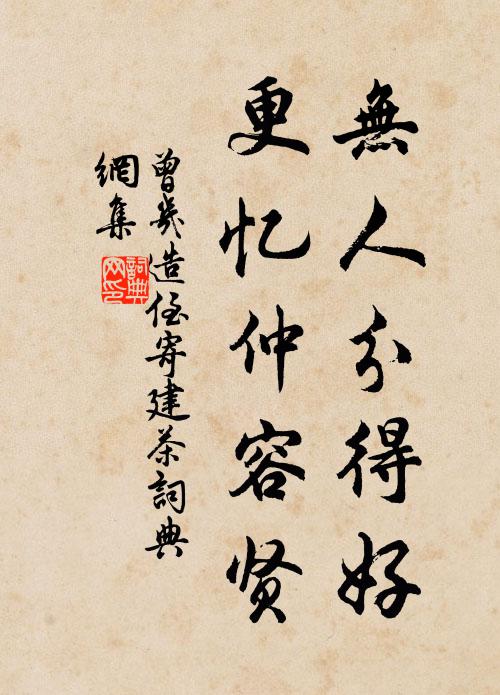 無人分得好
更忆仲容贤
曾幾造侄寄建茶詞典
網集
詞典
网印